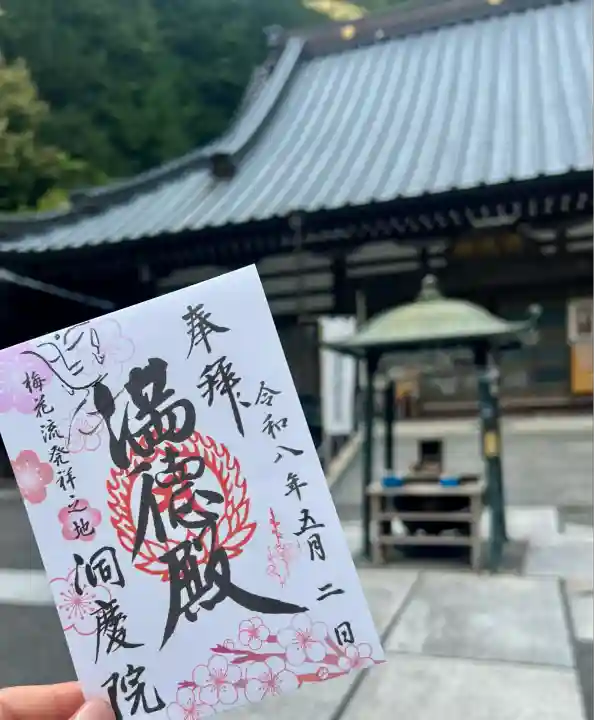 奉拝
令和八年五月二日
満徳殿
梅花流発祥之地
洞慶院